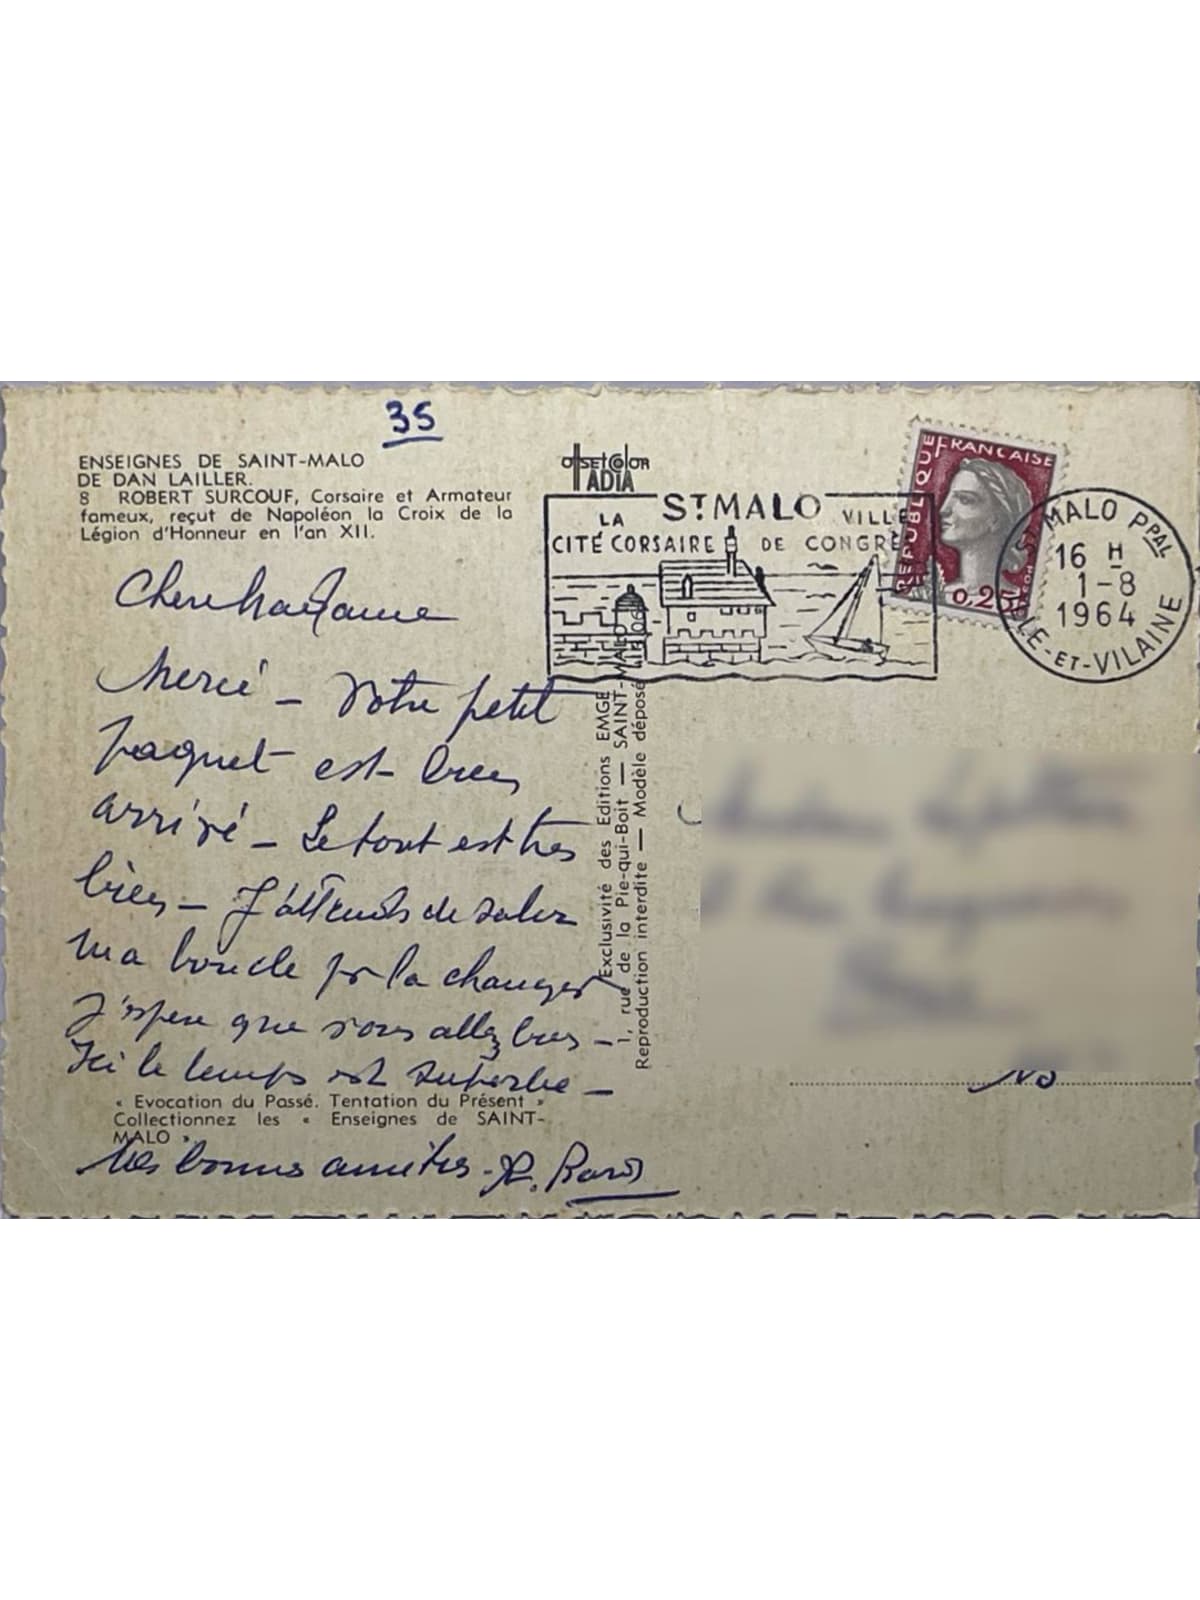 35
ENSEIGNES DE SAINT-MALO
DE DAN LAILLER.
8 ROBERT SURCOUF, Corsaire et Armateur
fameux, reçut de Napoléon la Croix de la
Légion d'Honneur en l'an XII.
Chère Madame
Merci – Votre petit
paquet est bien
arrivé – Le tout est très
bien – J'attends de
ma boucle pr la changer
J'espère que vous allez bien –
Ici le temps est superbe –
« Evocation du Passé. Tentation du Présent »
Collectionnez les « Enseignes de SAINT-
MALO »
Mes bonnes amitiés –
OFFSETCOLOR
IADIA
Exclusivité des Editions EMGE
1, rue de la Pie-qui-Boit — SAINT-MALO
Reproduction interdite — Modèle déposé
ST MALO
LA
CITÉ CORSAIRE
VILLE
DE CONGRÈ
REPUBLIQUE FRANÇAISE
0,25
MALO PPAL
16 H
1-8
1964
ILLE-ET-VILAINE